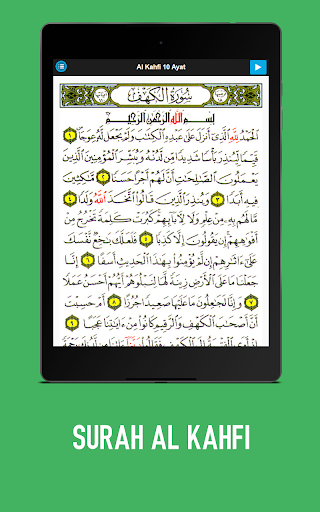 Al Kahfi 10 Ayat
سُورَةُ الكَهْفِ
بِسْمِ ٱللَّهِ ٱلرَّحْمَٰنِ ٱلرَّحِيمِ
ٱلْحَمْدُ لِلَّهِ ٱلَّذِىٓ أَنزَلَ عَلَىٰ عَبْدِهِ ٱلْكِتَٰبَ وَلَمْ يَجْعَل لَّهُۥ عِوَجَا ١
قَيِّمًا لِّيُنذِرَ بَأْسًا شَدِيدًا مِّن لَّدُنْهُ وَيُبَشِّرَ ٱلْمُؤْمِنِينَ ٱلَّذِينَ
يَعْمَلُونَ ٱلصَّٰلِحَٰتِ أَنَّ لَهُمْ أَجْرًا حَسَنًا ٢ مَّٰكِثِينَ
فِيهِ أَبَدًا ٣ وَيُنذِرَ ٱلَّذِينَ قَالُوا۟ ٱتَّخَذَ ٱللَّهُ وَلَدًا ٤
مَّا لَهُم بِهِۦ مِنْ عِلْمٍ وَلَا لِءَابَآئِهِمْ كَبُرَتْ كَلِمَةً تَخْرُجُ مِنْ
أَفْوَٰهِهِمْ إِن يَقُولُونَ إِلَّا كَذِبًا ٥ فَلَعَلَّكَ بَٰخِعٌ نَّفْسَكَ
عَلَىٰٓ ءَاثَٰرِهِمْ إِن لَّمْ يُؤْمِنُوا۟ بِهَٰذَا ٱلْحَدِيثِ أَسَفًا ٦ إِنَّا
جَعَلْنَا مَا عَلَى ٱلْأَرْضِ زِينَةً لَّهَا لِنَبْلُوَهُمْ أَيُّهُمْ أَحْسَنُ عَمَلًا
٧ وَإِنَّا لَجَٰعِلُونَ مَا عَلَيْهَا صَعِيدًا جُرُزًا ٨ أَمْ حَسِبْتَ
أَنَّ أَصْحَٰبَ ٱلْكَهْفِ وَٱلرَّقِيمِ كَانُوا۟ مِنْ ءَايَٰتِنَا عَجَبًا
SURAH AL KAHFI